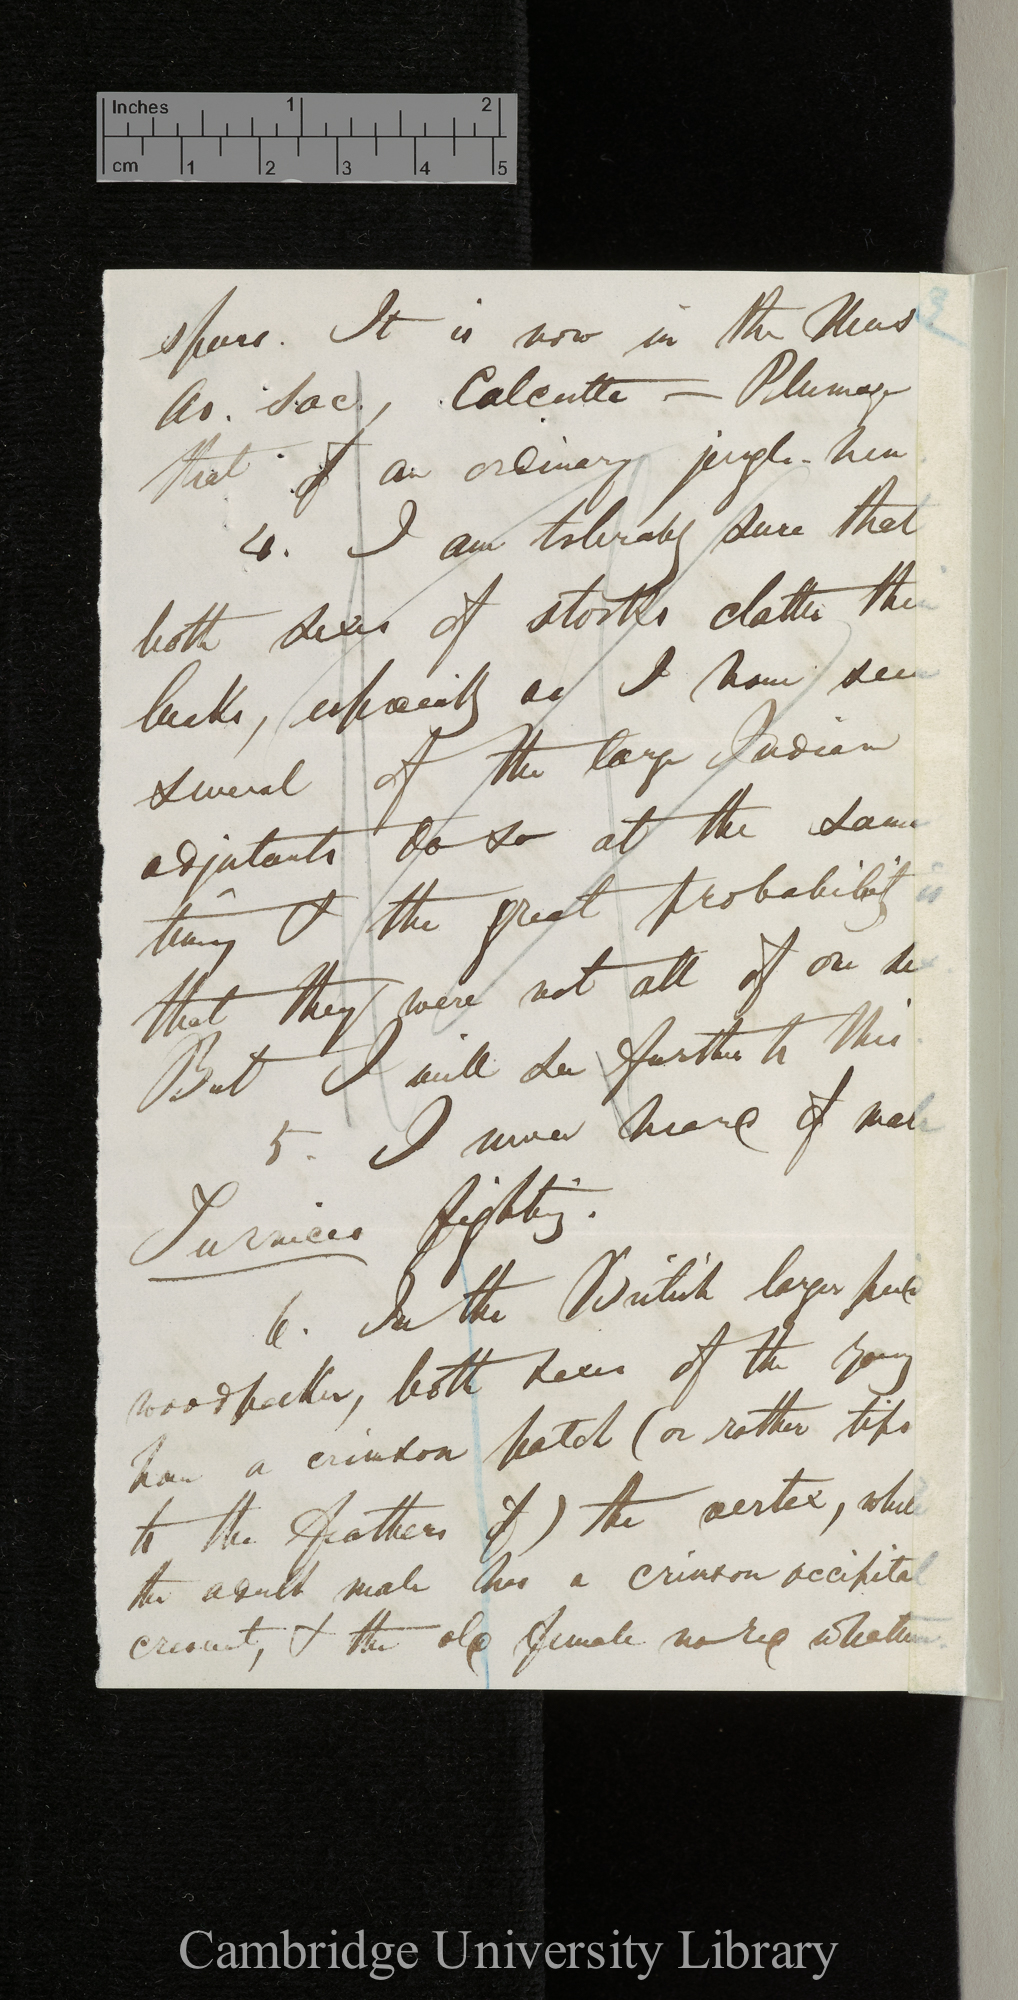 Inches 1 2
cm 1 2 3 4 5
spurs. It is now in the Mus
As. Soc., Calcutta — Plumage
that of an ordinary jungle-hen
4. I am tolerably sure that
both sexes of storks clatter thei
beaks, especially as I have seen
several of the large Indian
adjutants do so at the same
time & the great probability is
that they were not all of one sex.
But I will see further to this.
5. I never heard of male
Turnices fighting.
6. In the British larger pied
woodpecker, both sexes of the young
have a crimson patch (or rather tips
to the feathers of) the vertex, while
the adult male has a crimson occipital
crescent, & the old female no red whatever.
Cambridge University Library